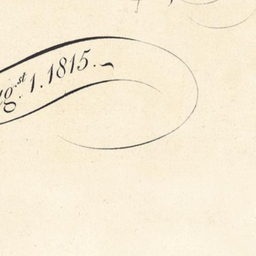 gst. 1. 1815.